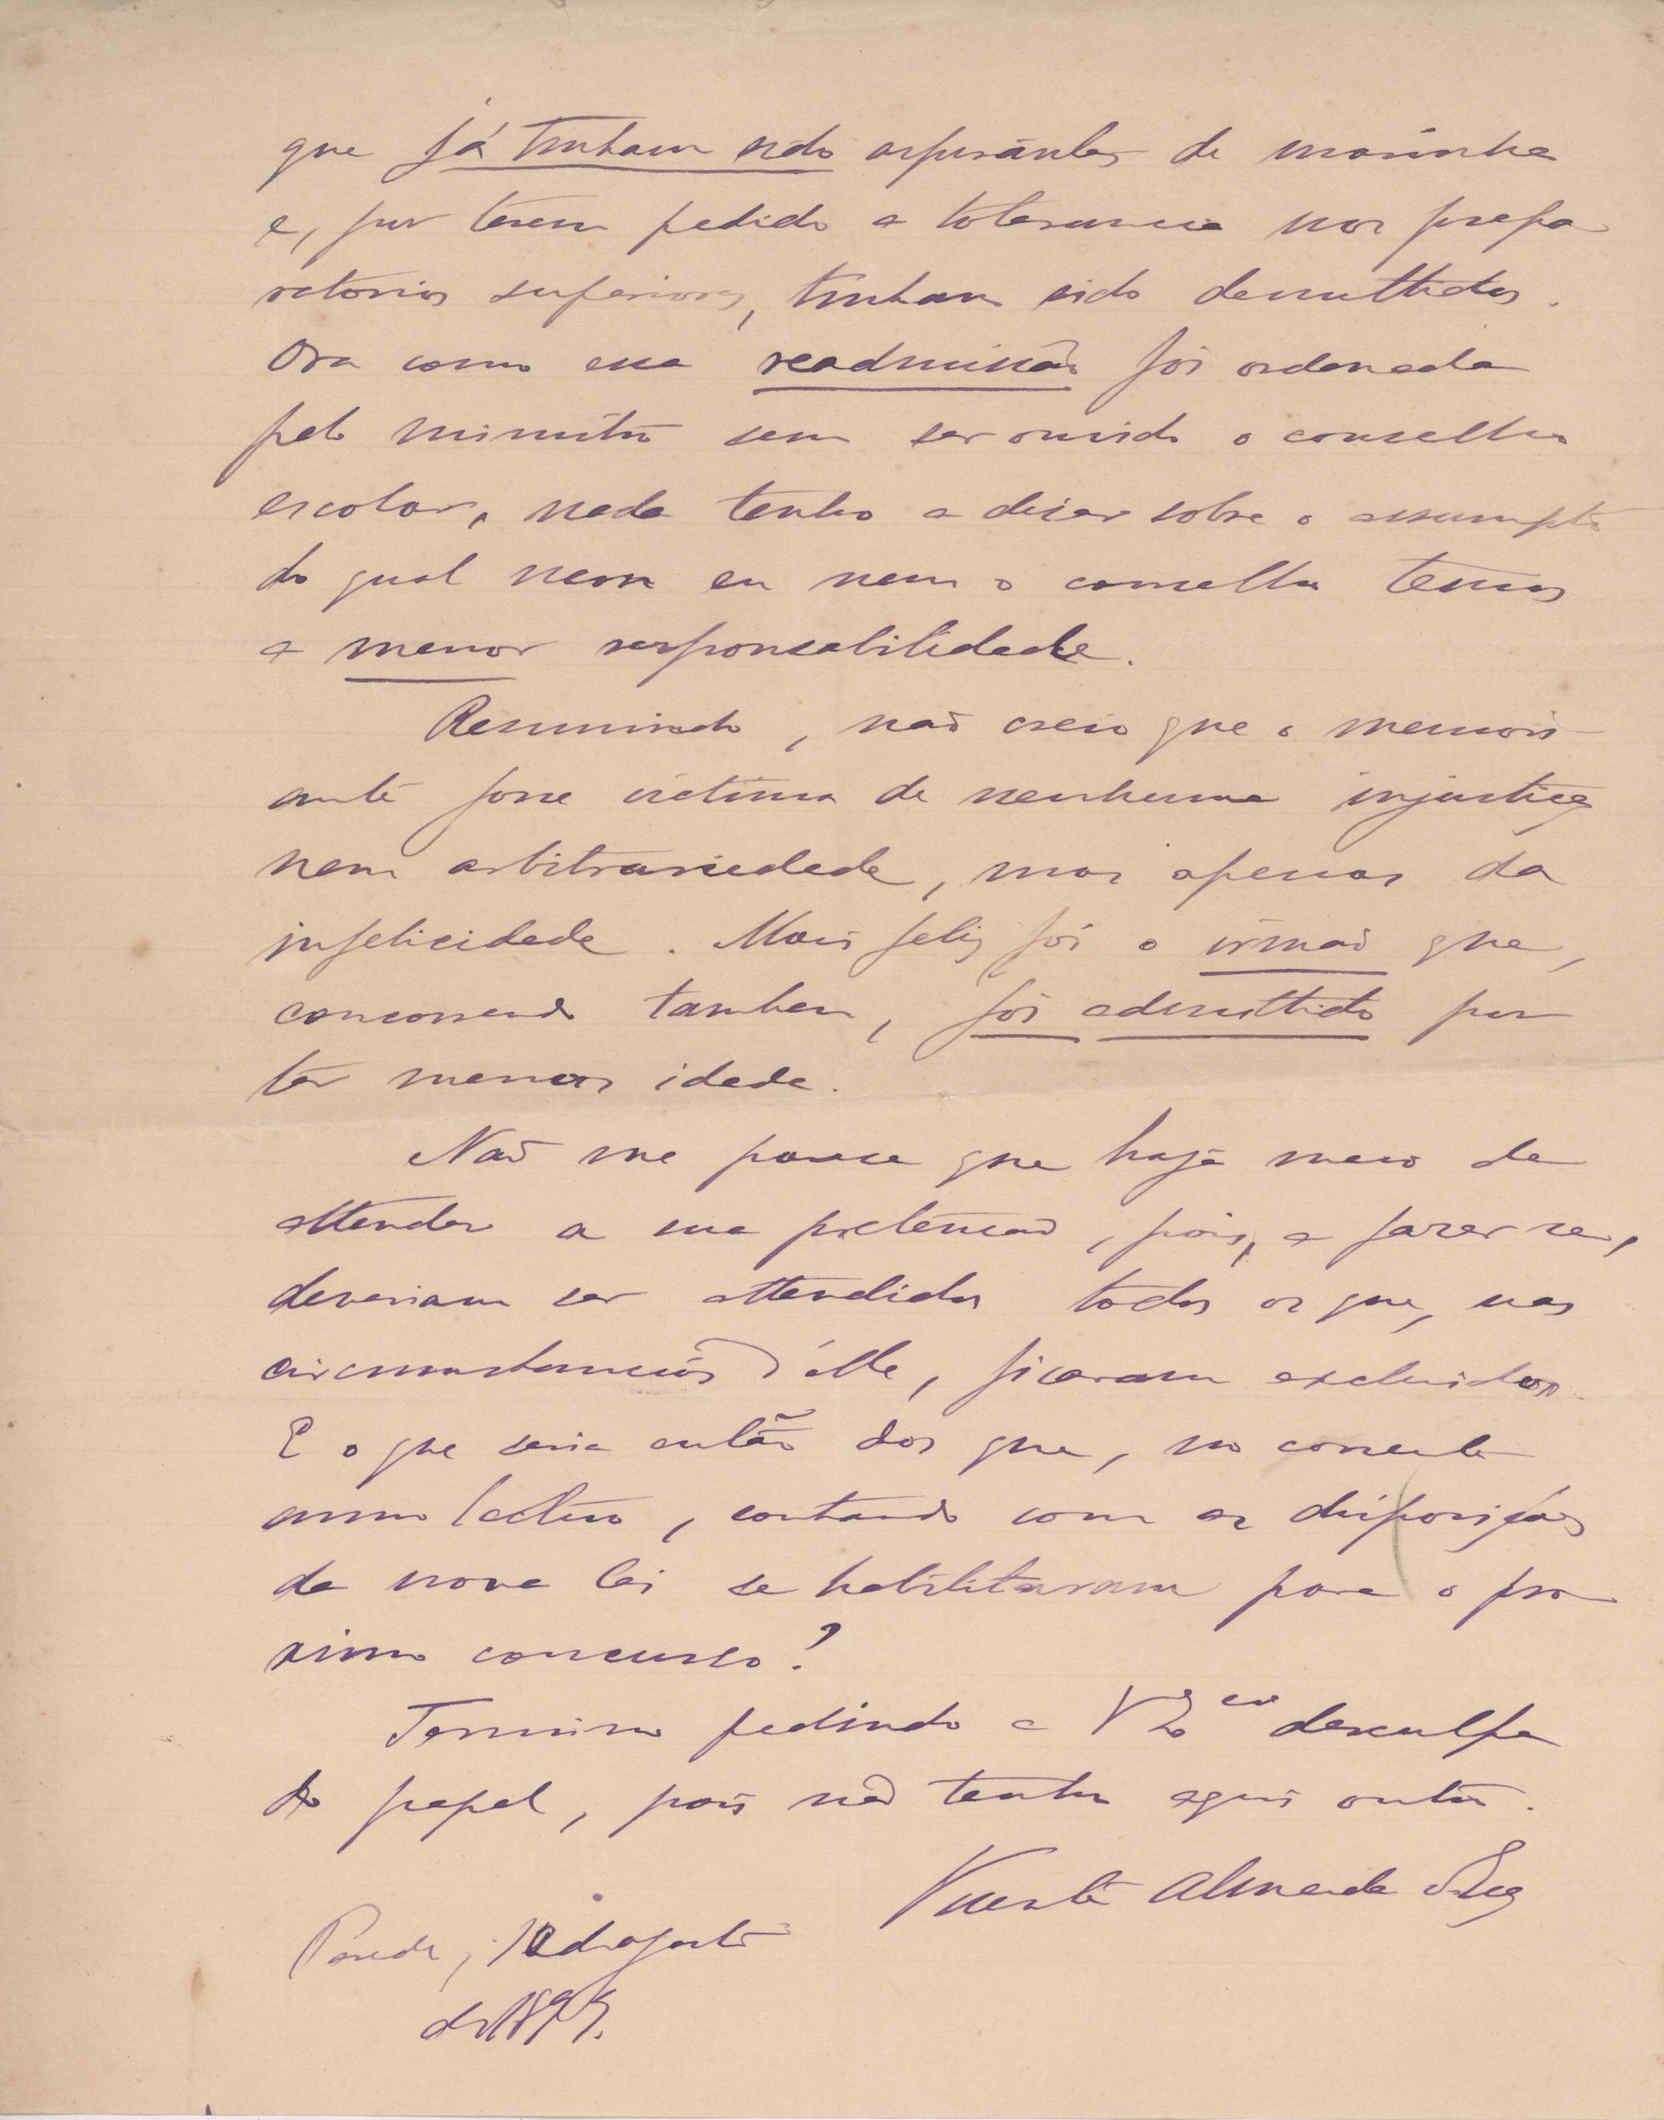 que já tinham sido aspirantes de marinha
e, por terem pedido a tolerancia nos prepa
ratorios superiores, tinham sido demittidos.
Ora como essa readmissão foi ordenada
pelo ministro sem ser ouvido o conselho
escolar, nada tenho a dizer sobre o assumpto
do qual nem eu nem o conselho temos
a menor responsabilidade.
Resumindo, não creio que o memori
ante fosse victima de nenhuma injustiça
nem arbitrariedade, mas apenas da
infelicidade. Mais feliz foi o irmão que,
concorrendo tambem, foi admittido por
ter menos idade.
Não me parece que haja meio de
attender a sua pretensão, pois, a fazer-se,
deveriam ser attendidos todos os que, nas
circumstancias d'elle, ficaram excluidos.
E o que seria então dos que, no corrente
anno lectivo, contando com as disposições
da nova lei se habilitaram para o pro
ximo concurso?
Termino pedindo a V. Ex.cia desculpa
do papel, pois não tenho aqui outro.
Vicente Almeida d'Eça
Parede, 10 d'agosto
de 1899.